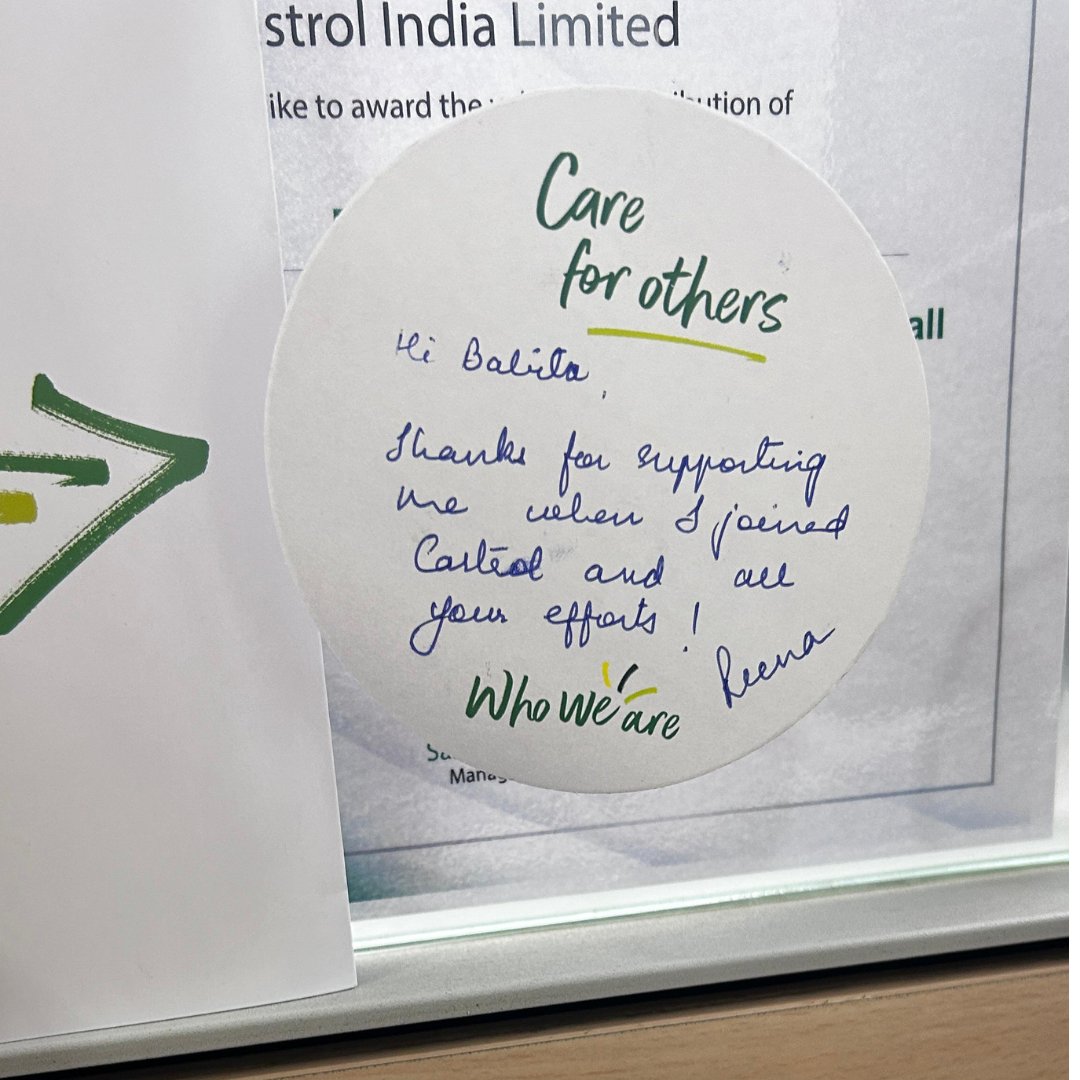 strol India Limited
ike to award the
ution of
Care
for others
all
Hi Babita,
Thanks for supporting
me when I joined
Castrol and all
your efforts!
Reena
Who we are
Su
Manag